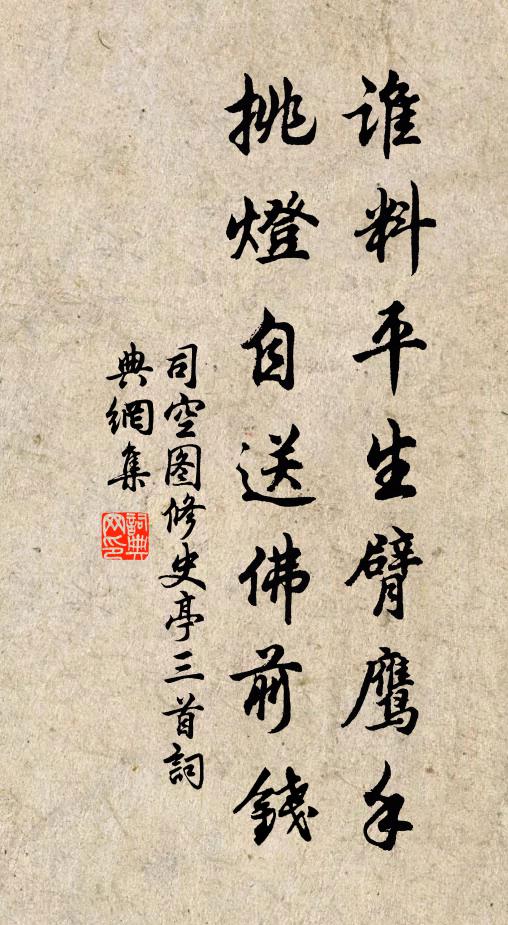 谁料平生臂鹰手
挑燈自送佛前錢
司空图修史亭三首詞
典網集
詞典
网印